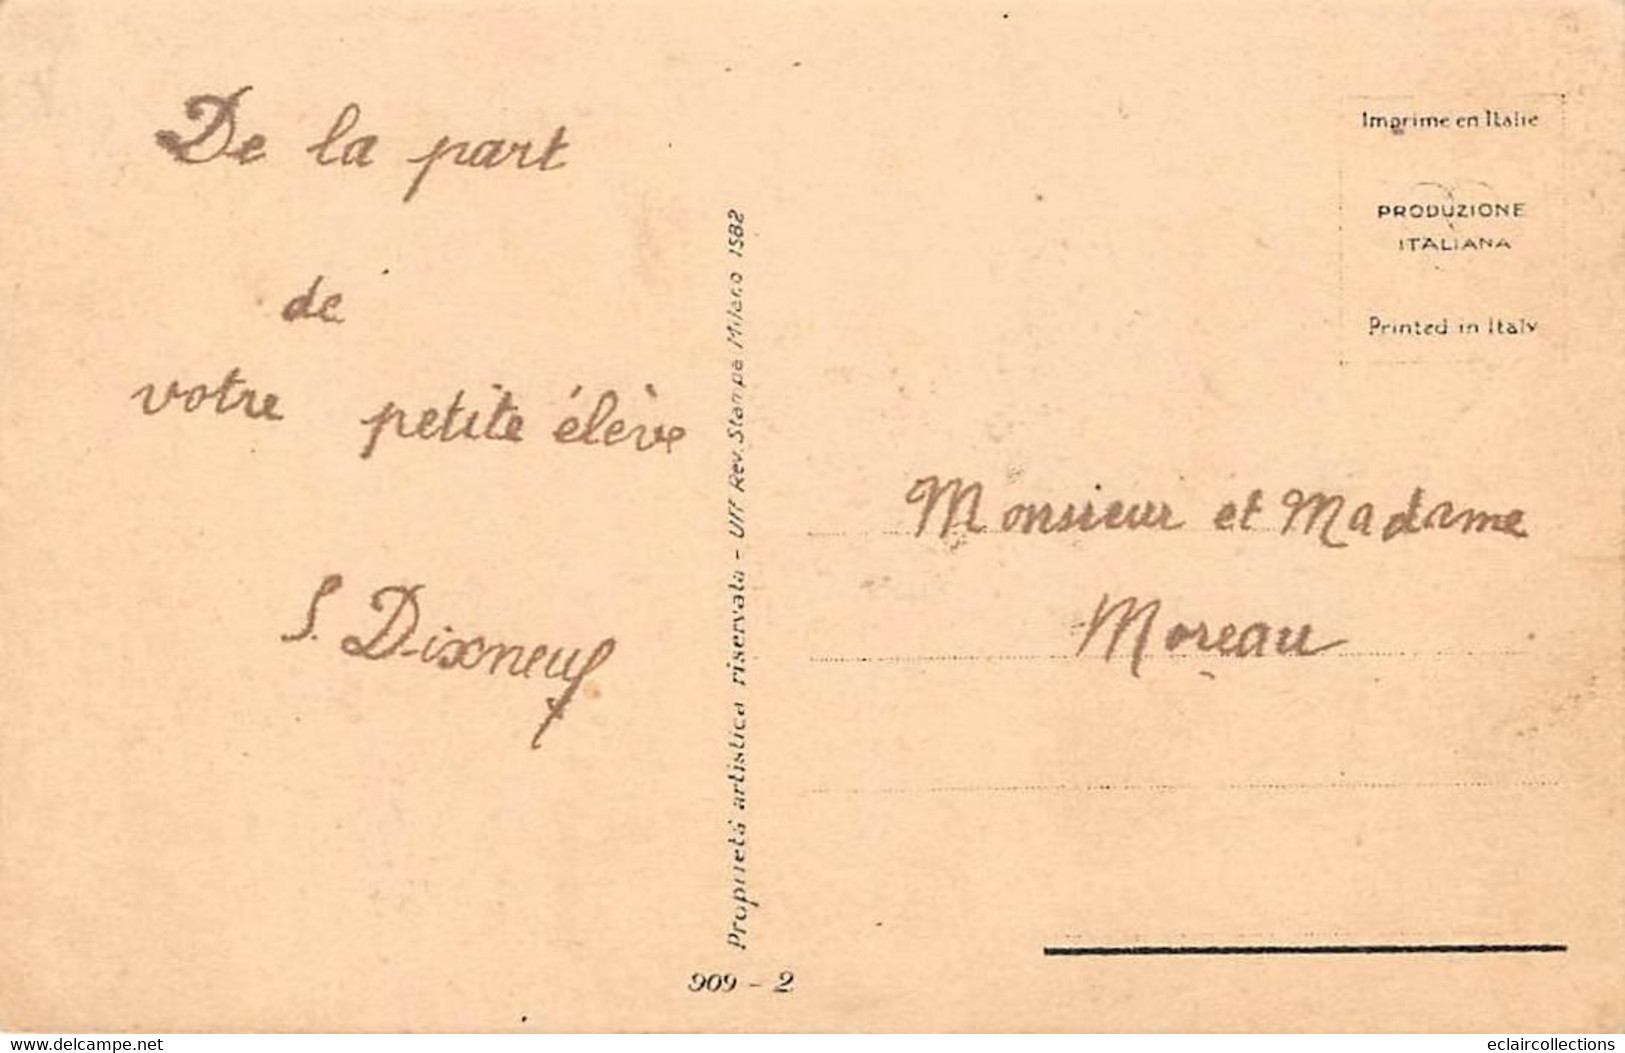 De la part
de
votre petite élève
S. Dixneuf
Proprietà artistica riservata - Uff Rev. Stampa Milano 1582
909 - 2
Imprime en Italie
PRODUZIONE
ITALIANA
Printed in Italy
Monsieur et Madame
Moreau
www.delcampe.net
eclaircollections